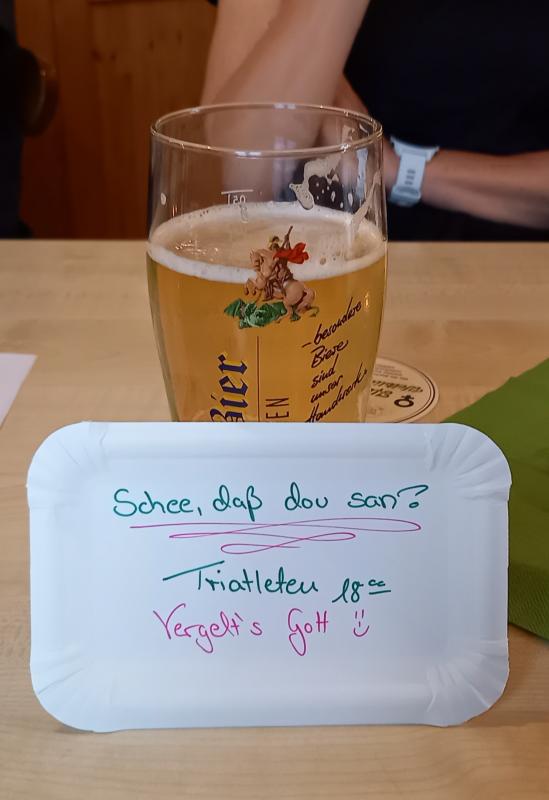 0,5l
Bier
EN
besondere
Biere
sind
unser
Handwerk.
Schee, daß dou san?
Triatleten 18ºº
Vergelt's Gott